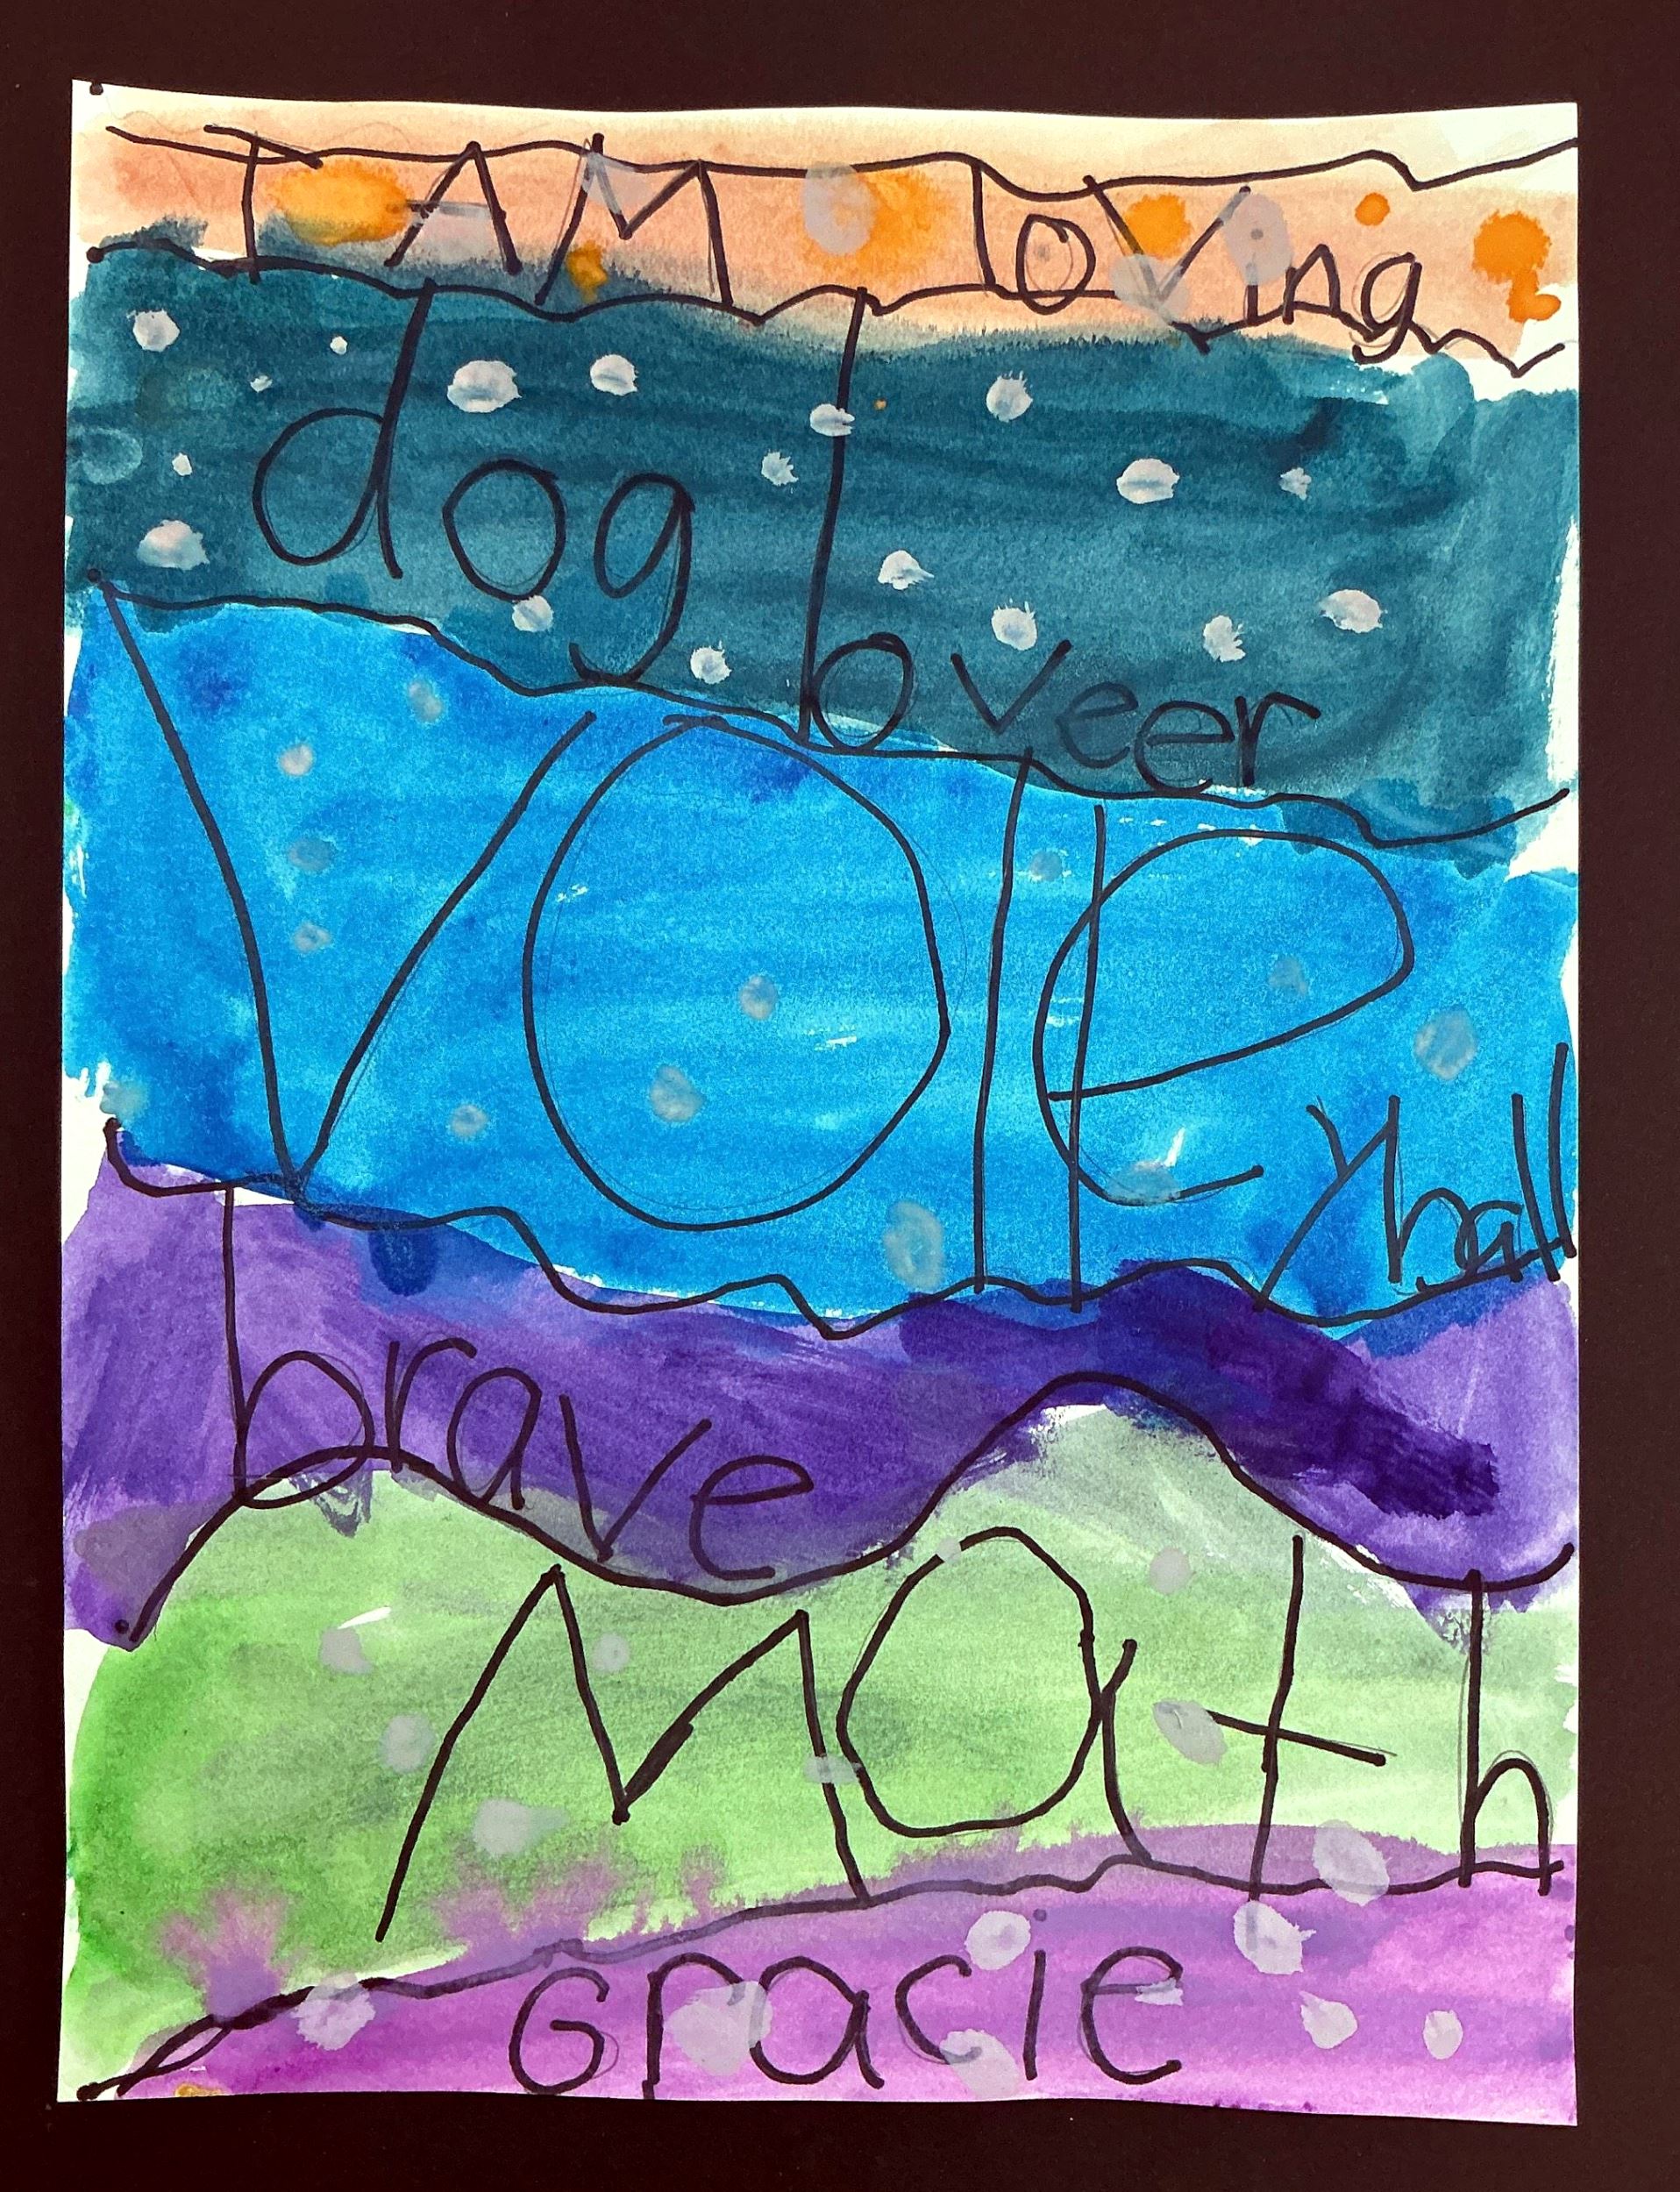 I AM loving
dog loveer
Volleyball
brave
Math
Gracie